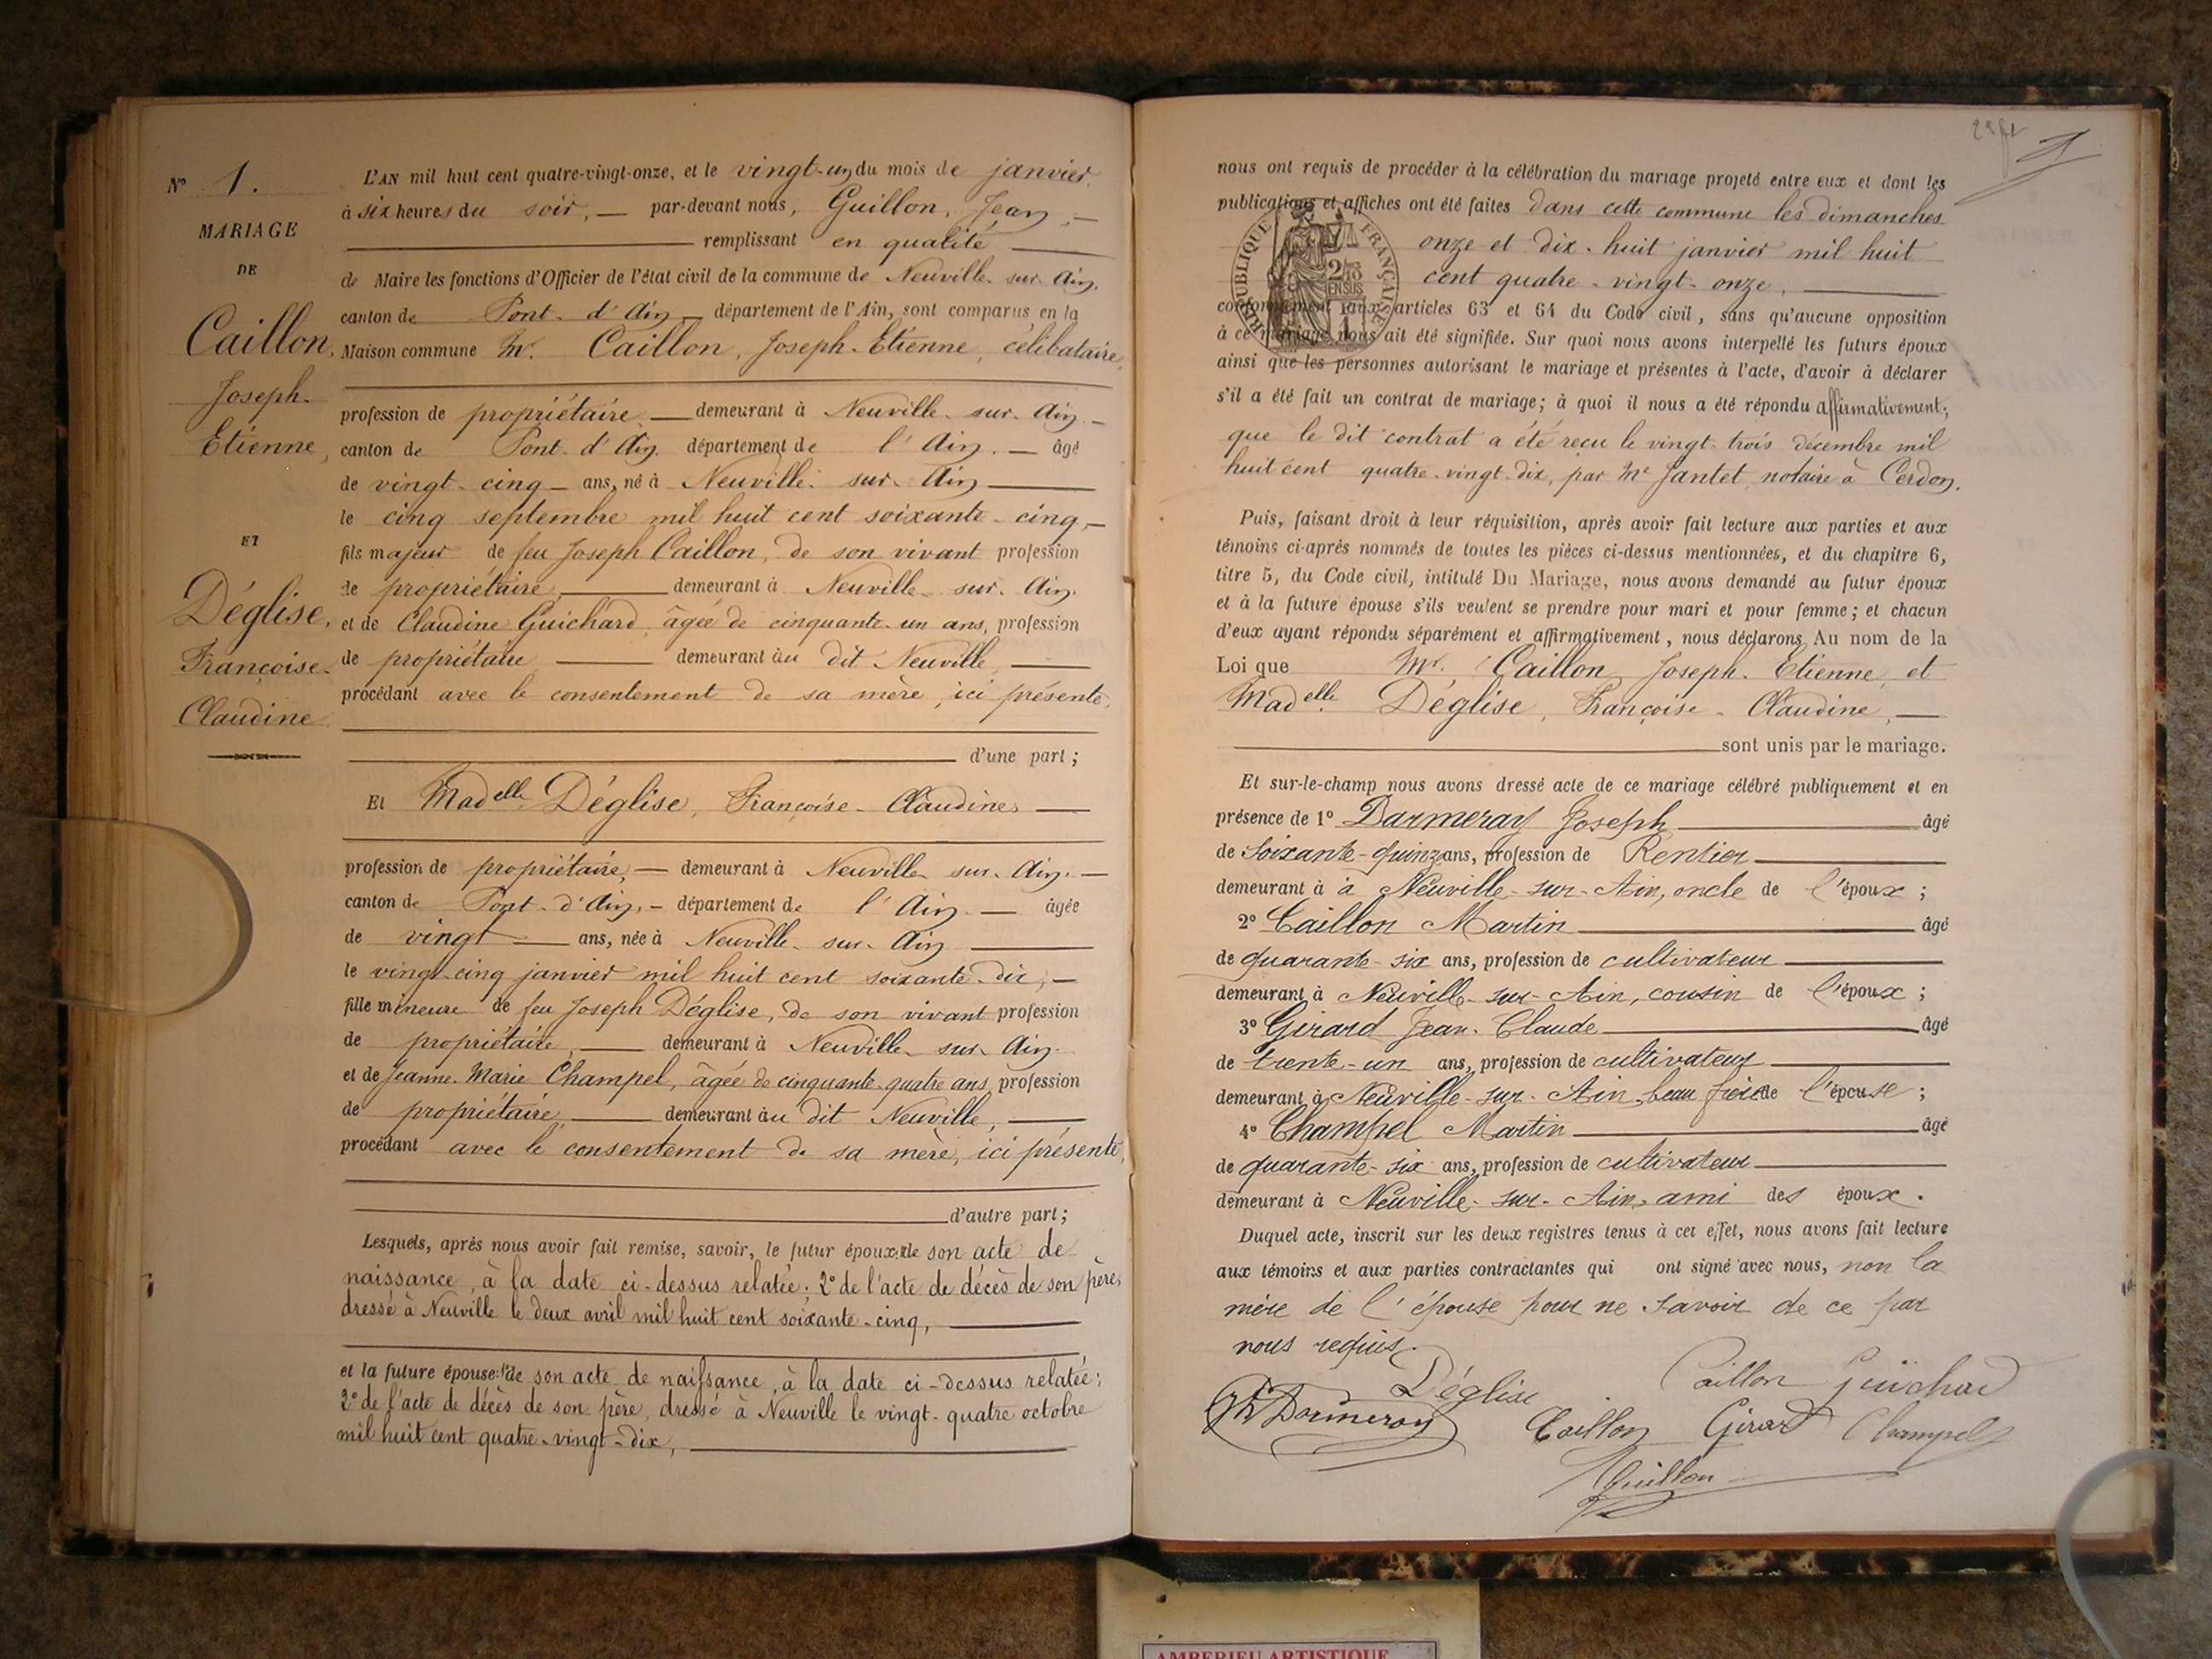 N° 1.
MARIAGE
DE
Caillon,
Joseph-
Etienne,
ET
Déglise,
Françoise-
Claudine
L'AN mil huit cent quatre-vingt-onze, et le vingt-un du mois de janvier,
à six heures du soir, — par-devant nous, Guillon, Jean, —
remplissant en qualité
de Maire les fonctions d'Officier de l'état civil de la commune de Neuville-sur-Ain,
canton de Pont-d'Ain — département de l'Ain, sont comparus en la
Maison commune Mr. Caillon, Joseph-Etienne, célibataire,
profession de propriétaire — demeurant à Neuville-sur-Ain —
canton de Pont-d'Ain département de l'Ain. — âgé
de vingt-cinq — ans, né à Neuville-sur-Ain
le cinq septembre mil huit cent soixante-cinq, —
fils majeur de feu Joseph Caillon, de son vivant profession
de propriétaire, demeurant à Neuville-sur-Ain.
et de Claudine Guichard, âgée de cinquante-un ans, profession
de propriétaire demeurant au dit Neuville,
procédant avec le consentement de sa mère, ici présente,
d'une part ;
Et Madelle Déglise, Françoise-Claudine,
profession de propriétaire, — demeurant à Neuville-sur-Ain. —
canton de Pont-d'Ain, — département de l'Ain. — âgée
de vingt — ans, née à Neuville-sur-Ain
le vingt-cinq janvier mil huit cent soixante-dix, —
fille mineure de feu Joseph Déglise, de son vivant profession
de propriétaire, demeurant à Neuville-sur-Ain.
et de Jeanne-Marie Champel, âgée de cinquante-quatre ans, profession
de propriétaire, demeurant au dit Neuville,
procédant avec le consentement de sa mère, ici présente,
d'autre part ;
Lesquels, après nous avoir fait remise, savoir, le futur époux: 1° de son acte de
naissance, à la date ci-dessus relatée; 2° de l'acte de décès de son père,
dressé à Neuville le deux avril mil huit cent soixante-cinq,
et la future épouse: 1° de son acte de naissance, à la date ci-dessus relatée;
2° de l'acte de décès de son père, dressé à Neuville le vingt-quatre octobre
mil huit cent quatre-vingt-dix,
nous ont requis de procéder à la célébration du mariage projeté entre eux et dont les
publications et affiches ont été faites dans cette commune les dimanches
onze et dix-huit janvier mil huit
cent quatre-vingt-onze,
RÉPUBLIQUE FRANÇAISE
conformément aux articles 63 et 64 du Code civil, sans qu'aucune opposition
à ce mariage nous ait été signifiée. Sur quoi nous avons interpellé les futurs époux
ainsi que les personnes autorisant le mariage et présentes à l'acte, d'avoir à déclarer
s'il a été fait un contrat de mariage; à quoi il nous a été répondu affirmativement;
que le dit contrat a été reçu le vingt-trois décembre mil
huit cent quatre-vingt-dix, par Me Jantet, notaire à Cerdon.
Puis, faisant droit à leur réquisition, après avoir fait lecture aux parties et aux
témoins ci-après nommés de toutes les pièces ci-dessus mentionnées, et du chapitre 6,
titre 5, du Code civil, intitulé Du Mariage, nous avons demandé au futur époux
et à la future épouse s'ils veulent se prendre pour mari et pour femme ; et chacun
d'eux ayant répondu séparément et affirmativement, nous déclarons Au nom de la
Loi que Mr. Caillon Joseph-Etienne, et
Madelle Déglise, Françoise-Claudine, —
sont unis par le mariage.
Et sur-le-champ nous avons dressé acte de ce mariage célébré publiquement et en
présence de 1° Darmeray Joseph âgé
de soixante-quinze ans, profession de Rentier
demeurant à à Neuville-sur-Ain, oncle de l'époux ;
2° Caillon Martin âgé
de quarante-six ans, profession de cultivateur
demeurant à Neuville-sur-Ain, cousin de l'époux ;
3° Girard Jean-Claude âgé
de trente-un ans, profession de cultivateur
demeurant à Neuville-sur-Ain, beau frère de l'épouse ;
4° Champel Martin âgé
de quarante-six ans, profession de cultivateur
demeurant à Neuville-sur-Ain, ami des époux.
Duquel acte, inscrit sur les deux registres tenus à cet effet, nous avons fait lecture
aux témoins et aux parties contractantes qui ont signé avec nous, non la
mère de l'épouse pour ne savoir de ce par
nous requis.
Déglise Caillon Guichard
Darmeray Caillon Girard Champel
Guillon
AMBERIEU ARTISTIQUE